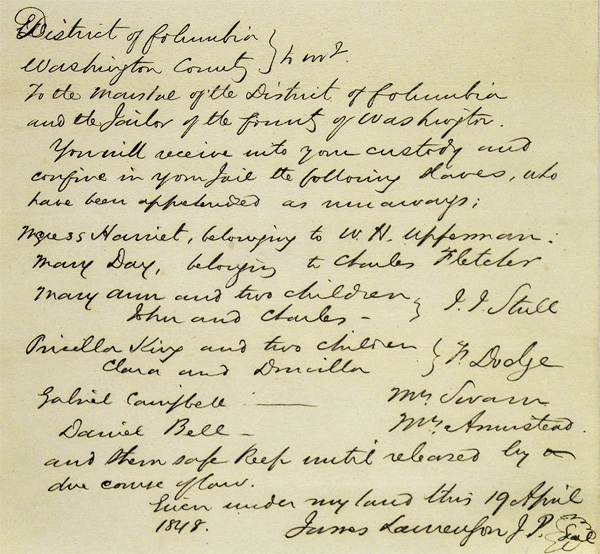 District of Columbia
Washington County } to wit.
To the Marshal of the District of Columbia
and the Jailor of the County of Washington.
You will receive into your custody and
confine in your Jail the following slaves, who
have been apprehended as runaways;
Harriet, belonging to W. H. Upperman:
Mary Day, belonging to Charles Fletcher
Mary Ann and two children } J. J. Stull
John and Charles -
Pricella King and two children } F. Dodge
Clara and Drucilla
Gabriel Campbell - Mrs. Swann
Daniel Bell - Mrs. Armistead.
and them safe keep until released by
due course of law.
Given under my hand this 19 April
1848. James Lawrenson J. P. Seal